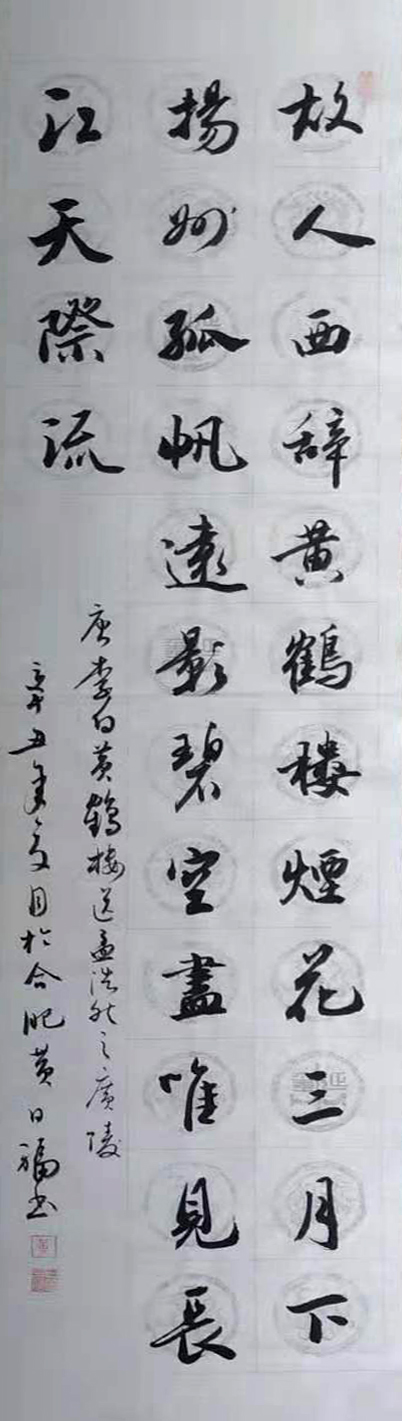 故人西辞黄鹤楼煙花三月下
揚州孤帆遠影碧空盡唯見長
江天際流
唐李白黄鹤楼送孟浩然之廣陵
辛丑年夏月於合肥黄日福书